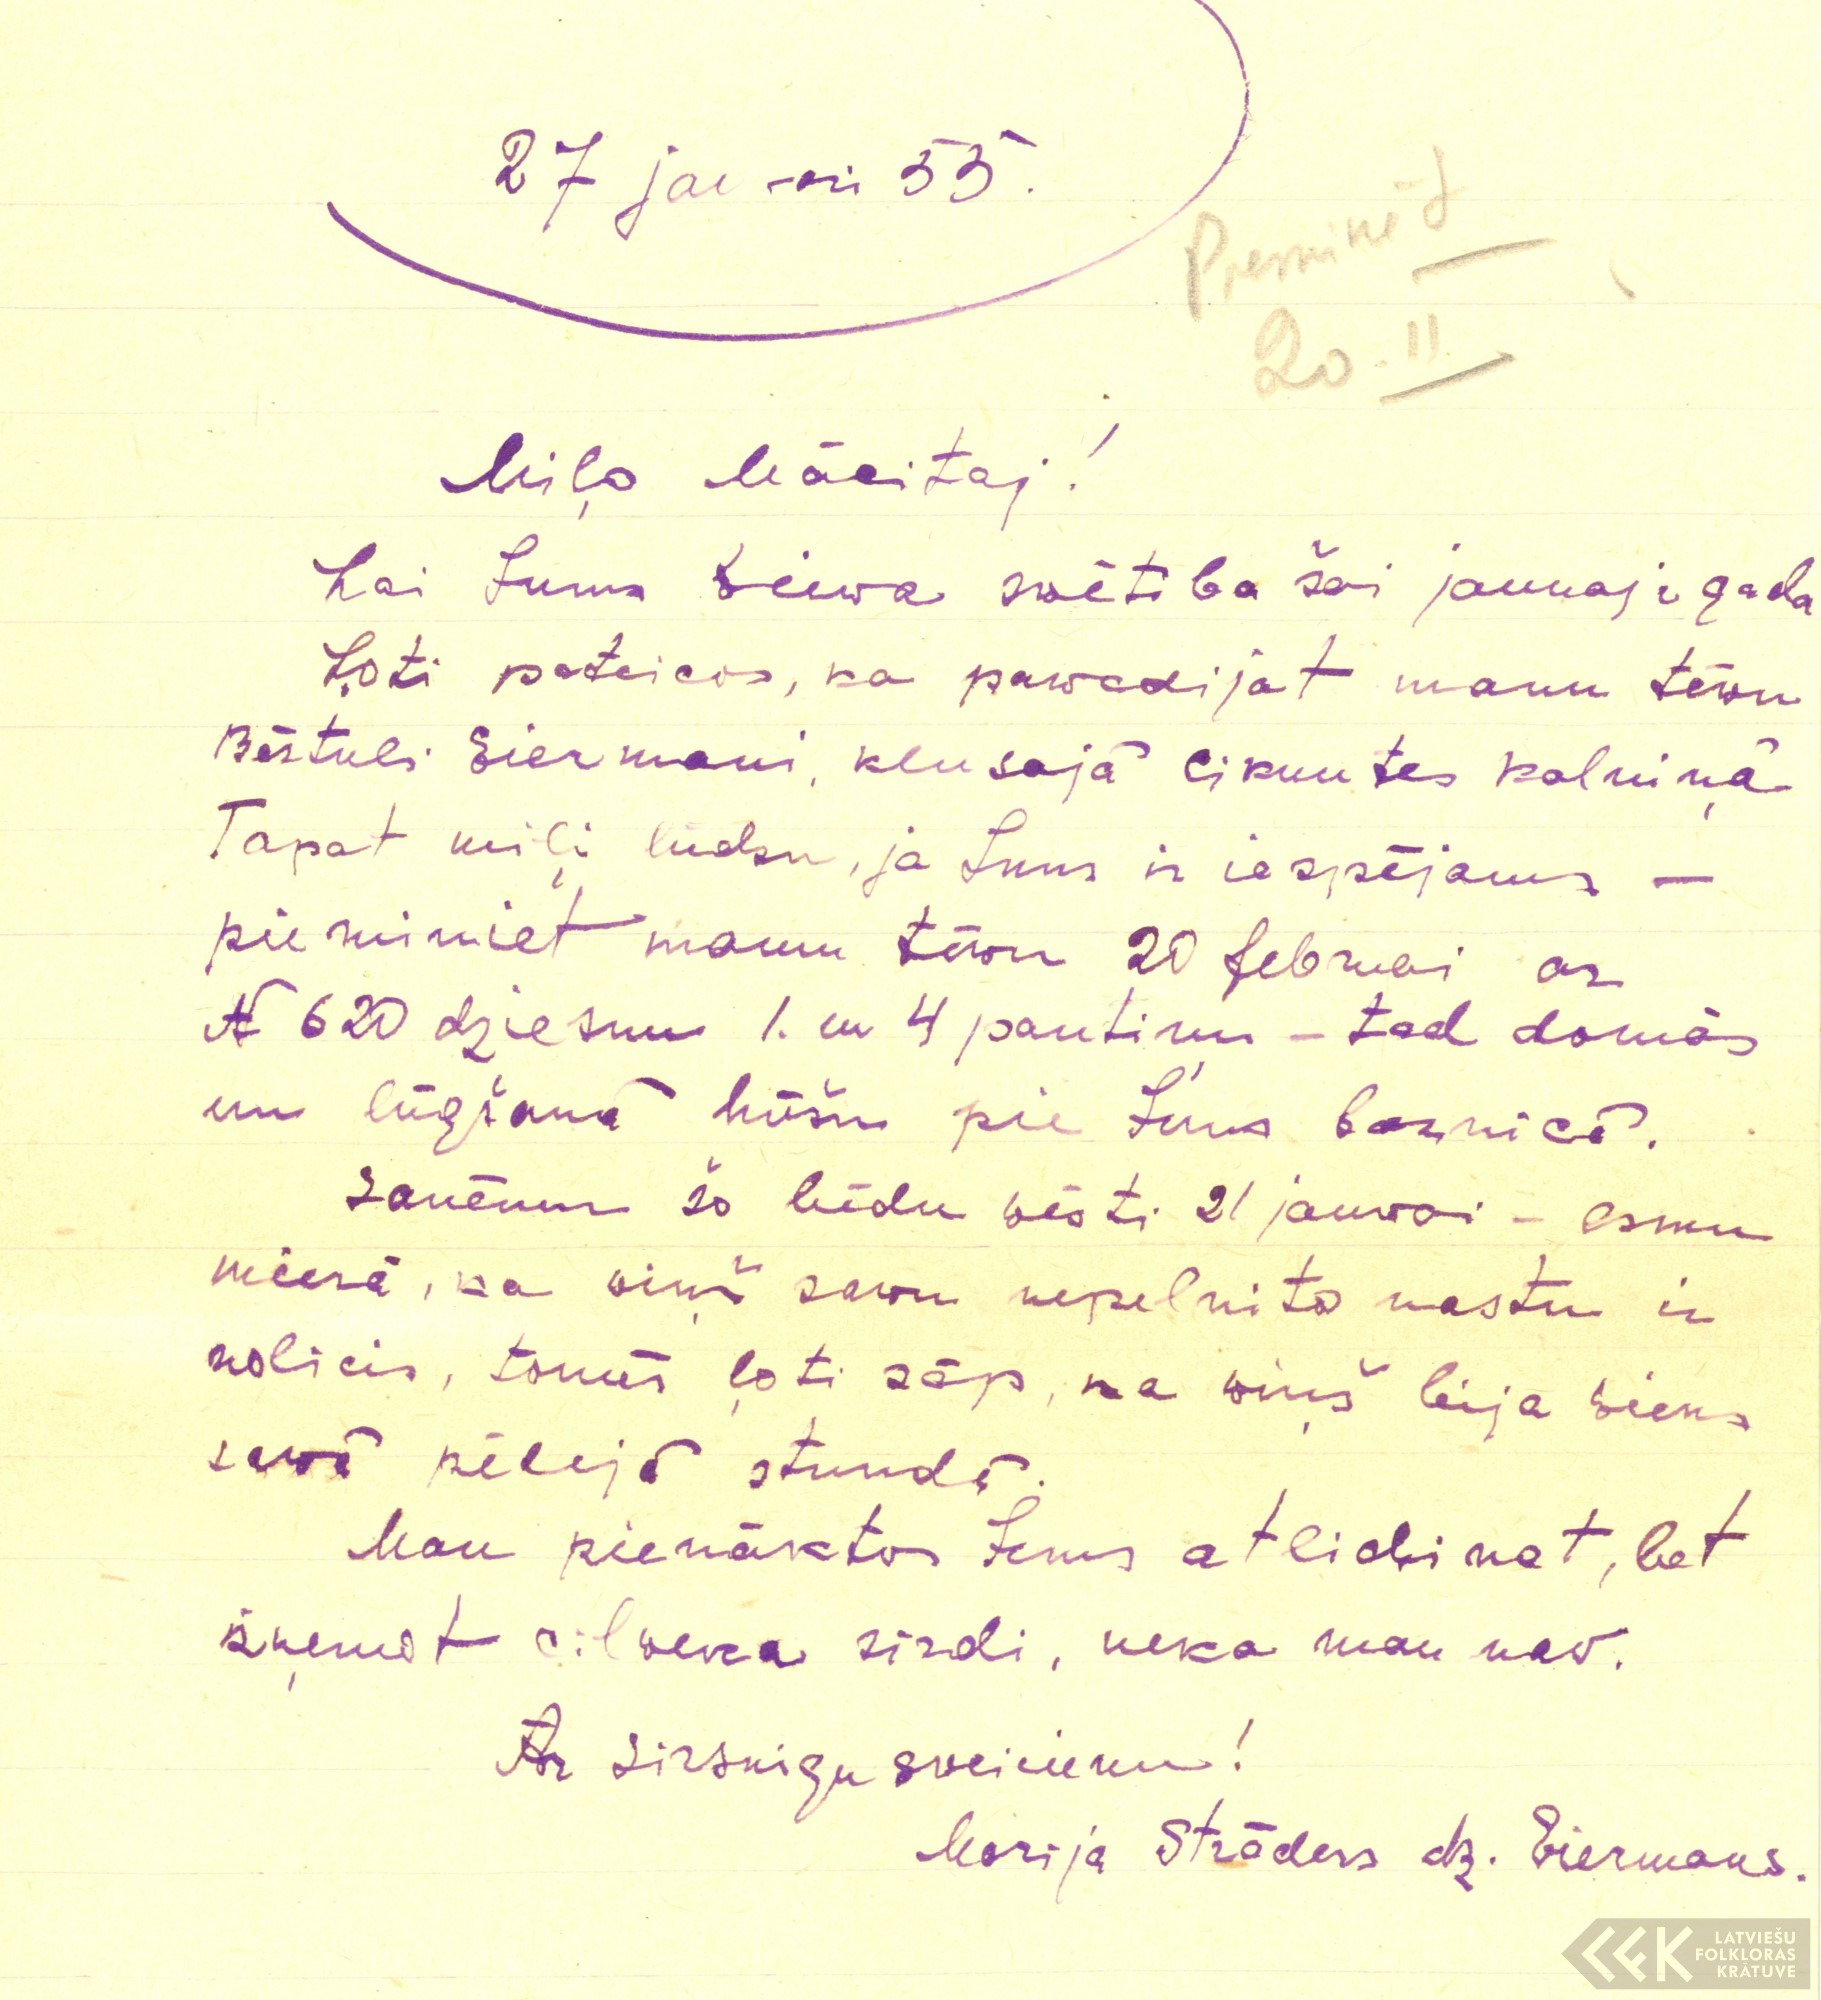 27 janvari 55.
Pieminēt
20. II
Miļo Mācitaj!
Lai Jums Diewa swētiba šai jaunaji gada
Ļoti pateicos, ka pawadijat manu tēwu
Bērtuli Eiermani, klusajā Cikuutes kalniņā
Tapat miļi lūdsu, ja Jums ir iespējams —
pieminiet manu tēwu 20 februai ar
N 620 dziesmu 1. un 4 pantiņu – tad domās
un lūgšanā būšu pie Jums baznicā.
Saņēmu šo bēdu wēsti 21 janwai – esmu
mierā, ka wiņš sawu nepelnito nastu ir
nolicis, tomēr ļoti sāp, ka wiņš bija wiens
sawā pēdejā stundā.
Man pienāktos Jums atlidzinat, bet
izņemot cilweka sirdi, neka man naw.
Ar sirsnigu sweicienu!
Marija Strāders dz. Eiermans.
LATVIEŠU
FOLKLORAS
KRĀTUVE